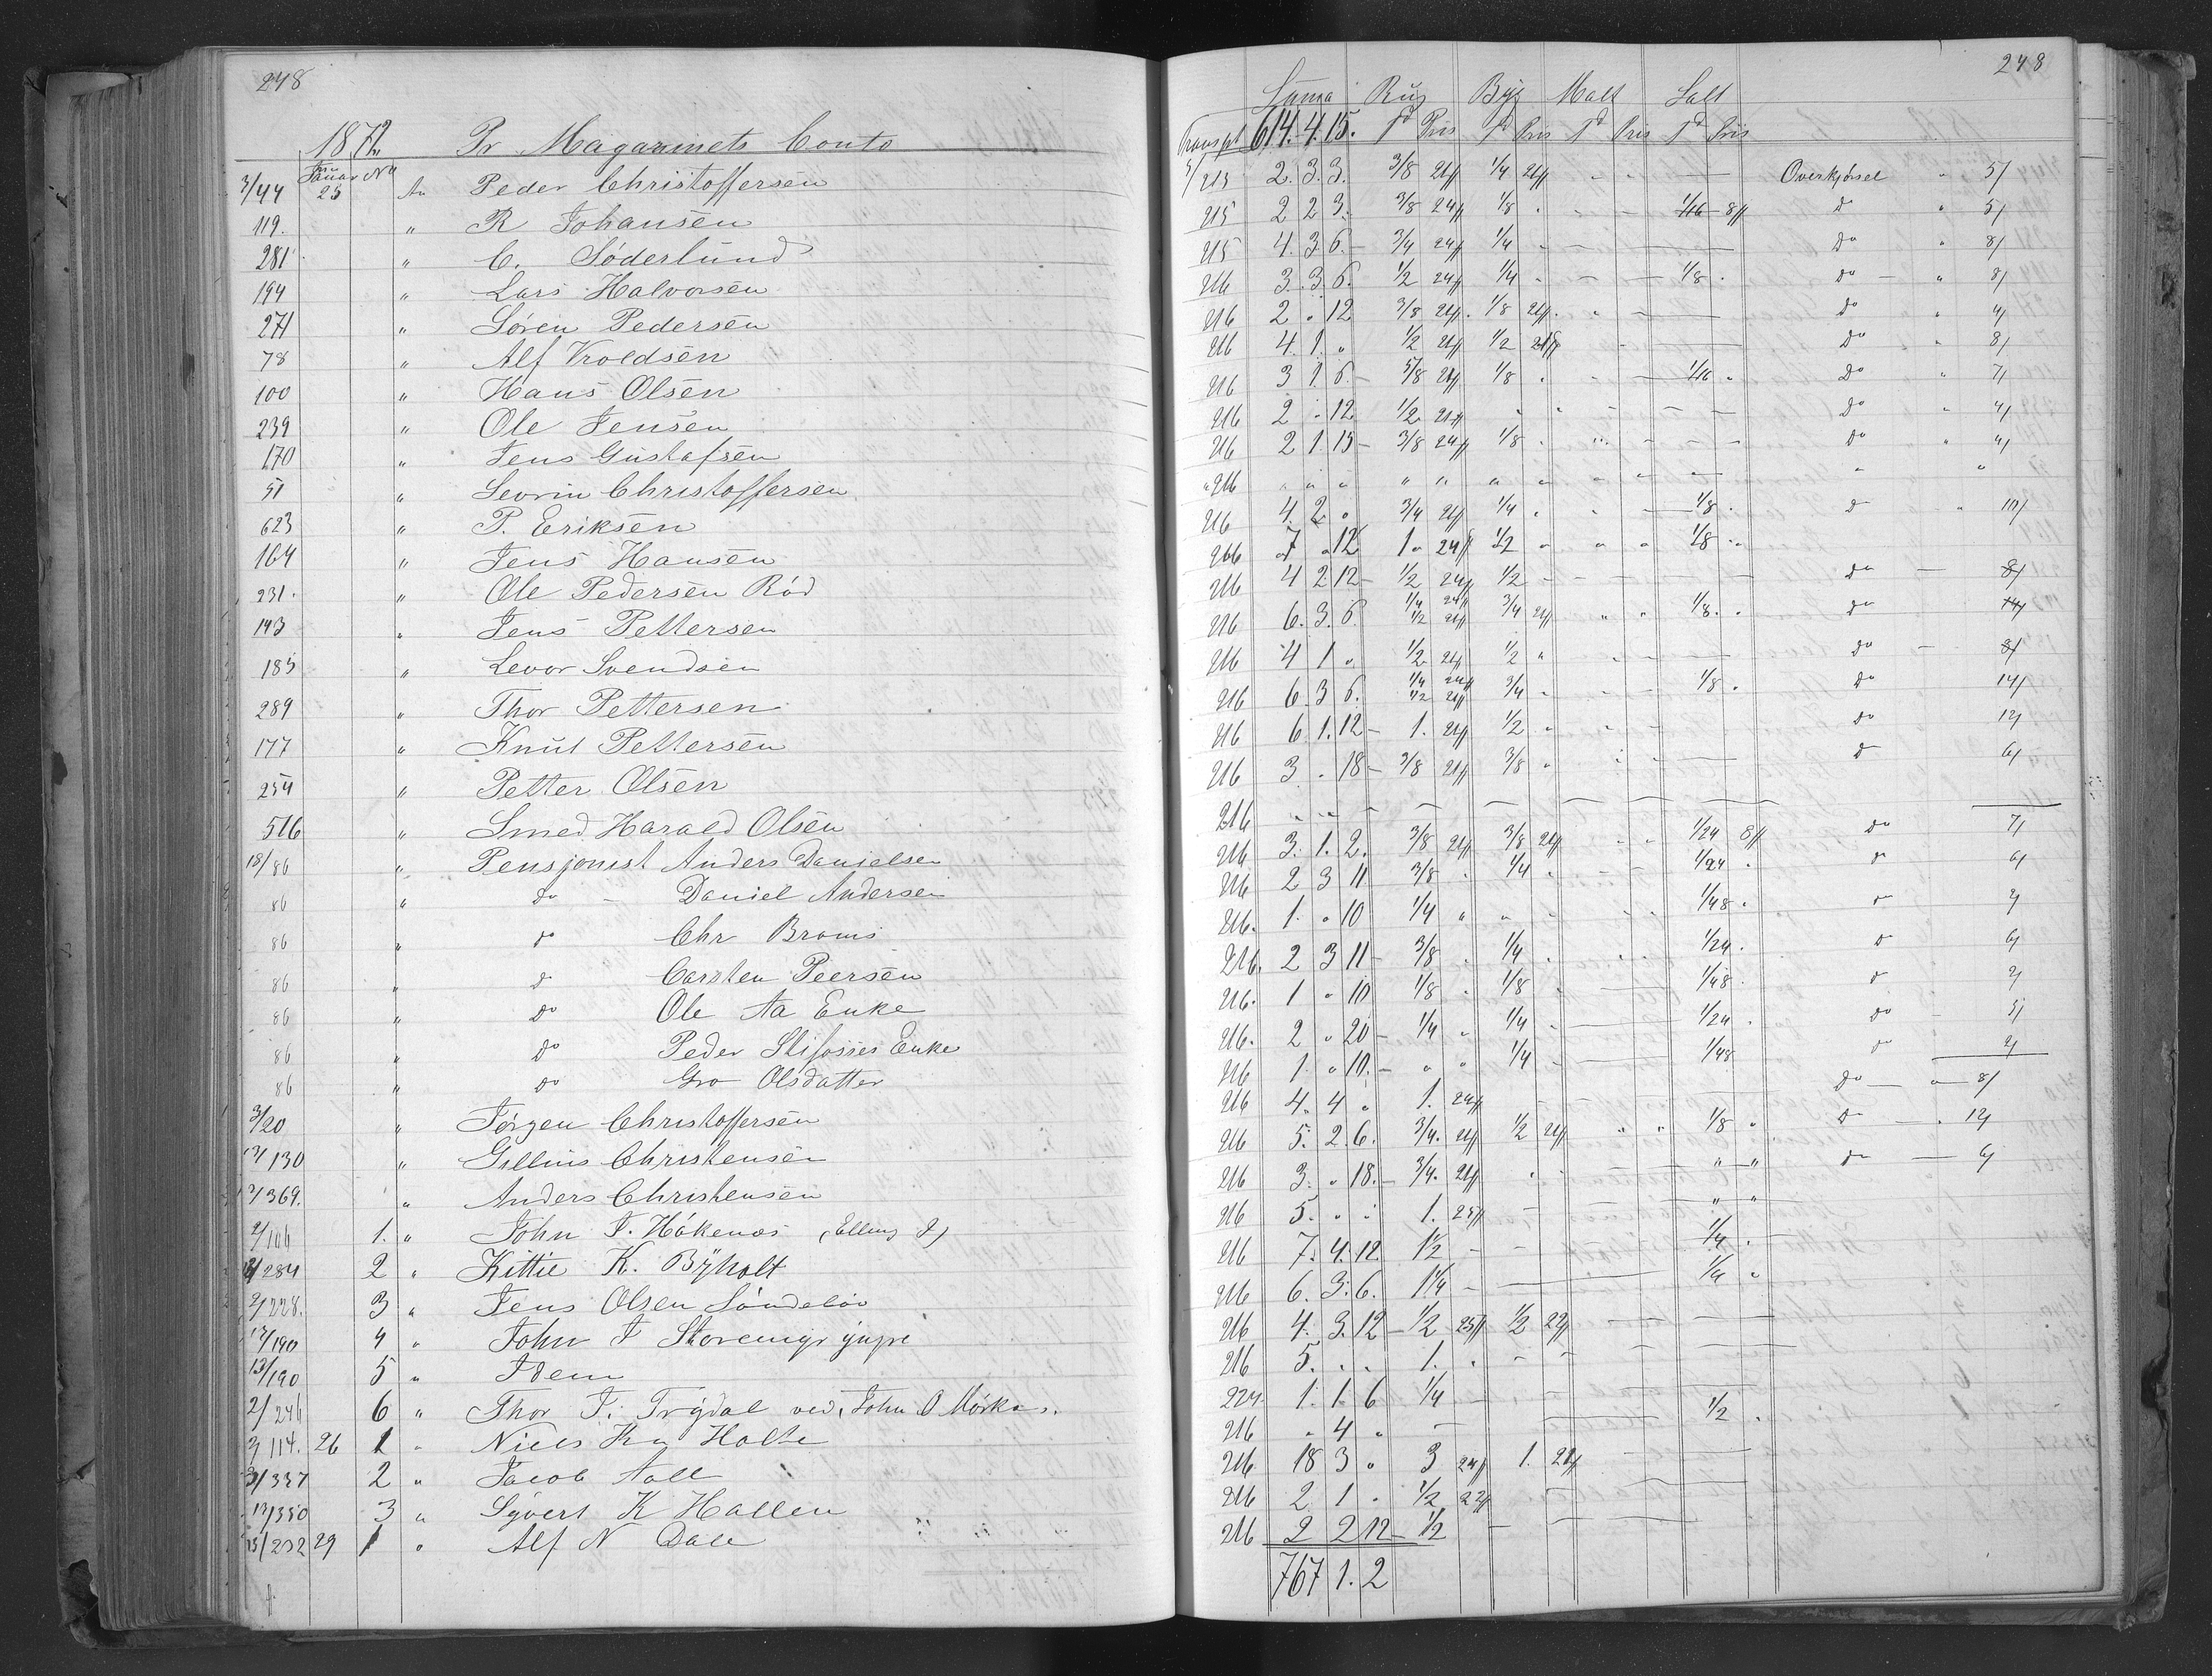 248
1872. Pr Magazinets Conto
Januar No
3/44 25 An Peder Christoffersen
119. " R Johansen
281 " C. Söderlund
194 " Lars Halvorsen
271 " Sören Pedersen
78 " Alf Vroldsen
100 " Hans Olsen
239 " Ole Jensen
170 " Jens Gustafsen
51 " Sevrin Christoffersen
623 " P. Eriksen
164 " Jens Hansen
231. " Ole Pedersen Röd
143 " Jens Pettersen
185 " Levor Svendsen
289 " Thor Pettersen
177 " Knut Pettersen
254 " Petter Olsen
516 " Smed Harald Olsen
18/86 " Pensjonist Anders Danielsen
86 " do - Daniel Andersen
86 " do Chr Broms
86 " do Carsten Peersen
86 " do Ole Aa Enke
86 " do Peder Enke
86 " do Gro Olsdatter
3/20 " Jörgen Christoffersen
130 " Gillius Christensen
369. " Anders Christensen
2/106 1. " John J. Håkenes (Elling J)
284 2 " Kittil K. Byholt
2/228. 3 " Jens Olsen Söndelöv
12/190 4 " John J
12/190 5 " Idem
2/246 6 " Thor J. Trydal ved John O
3/114. 26 1 " Niels Kn Holte
337 2 " Jacob Aall
13/350 3 " Syvert K Hallen
13/232 29 1 " Alf N Dale
248
Suma Rug Byg Malt Salt
Transpt 614. 4. 15. Td Pris Td Pris Td Pris Td Pris
3/215 2. 3. 3. 3/8 24 1/4 21 Overkjörsel " 5/
215 2 2 3. 3/8 24 1/8 " 1/16 8 do " 5/
215 4. 3. 6. 3/4 24 1/4 " do " 8/
216 3. 3. 6. 1/2 24 1/4 " 1/8 " do " 8/
216 2 " 12 3/8 24 1/8 21 do " 4/
216 4. 1. " 1/2 24 1/2 21 do " 8/
216 3 1. 6. 5/8 24 1/8 " 1/16 " do " 7/
216 2 " 12 1/2 24 do " 4/
216 2 1. 15 3/8 24 1/8 " do " 4/
216 " " " " " " "
216 4. 2 " 3/4 24 1/4 " 1/8 " do " 10/
216 7 " 12 1 " 24 1/2 " 1/8 "
216 4 2 12 1/2 24 1/2 do 8/
216 6. 3. 6 1/4 24 1/2 24 3/4 21 1/8 " do 14/
216 4 1 " 1/2 24 1/2 " do 8/
216 6. 3 6. 1/4 24 1/2 24 3/4 " 1/8 " do 14/
216 6 1. 12 1. 24 1/2 " do 12/
216 3 " 18 3/8 24 3/8 " do 6/
216 " "
216 3. 1. 2. 3/8 24 3/8 21 1/24 8 do 7/
216 2 3 11 3/8 " 1/4 " 1/24 " do 6/
216. 1. " 10 1/4 " 1/48 " do 2/
216. 2 3 11 3/8 " 1/4 " 1/24 " do 6/
216. 1 " 10 1/8 " 1/8 " 1/48 " do 2/
216. 2 " 20 1/4 " 1/4 " 1/24 " do 5/
216 1. " 10. " " 1/4 1/48 do 2/
216 4. 4 " 1. 24 do 8/
216 5. 2. 6. 3/4. 24 1/2 21 1/8 " do 12/
216 3. " 18. 3/4. 24 " " do 6/
216 5. " " 1. 25 " "
216 7. 4. 12. 1 1/2 1/4 "
216 6. 3. 6. 1 1/4 1/4 "
216 4. 3. 12 1/2 25 1/2 22
216 5. " " 1. "
224 1. 1. 6 1/4
216 " 4 " 1/2 "
216 18 3 " 3 24 1. 21
216 2 1 " 1/2 22
216 2 2 12 1/2
767 1. 2